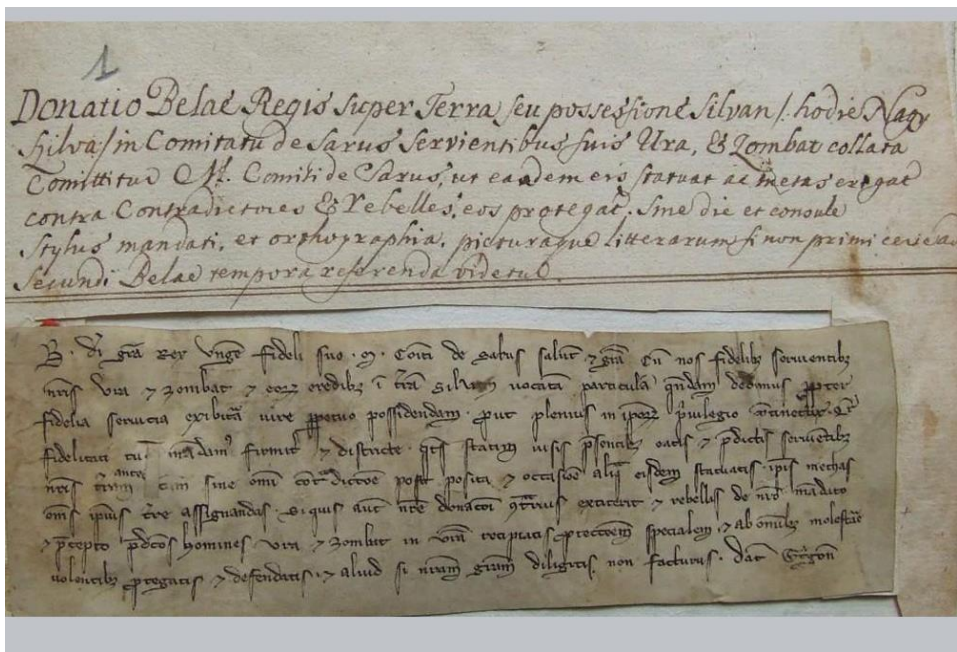 1
Donatio Belae Regis super Terra seu possessione Silvan /: hodie Nagy
Szilva :/ in Comitatu de Sarus Servientibus suis Ura, & Zombat collata
Comittitur Mr. Comiti de Sarus, ut eandem eis statuat ac metas erigat
contra Contradictores & Rebelles, eos protegat. Sine die et consule
Stylus mandati, et orthographia, picturaque litterarum si non primi certe ad
Secundi Belae tempora referenda videtur.
B. di gra Rex Vnge fideli suo .M. Comiti de Sarus salut ⁊ gram Cum nos fidelibz seruientibz
nris Vra ⁊ Zombat ⁊ eorz eredibz i tra Siluan uocata particula qndam dedimus propter
fidelia seruicia exibita iure perpetuo possidendam. prout plenius in iporz priuilegio
fidelitati tue mandam firmit ⁊ districte qts statim uisis psentibz ⁊ pdictis seruientibz
nris tram sine omi posita ⁊ occasioe aliq eisdem statuatis. ipis mechas
oms ipius tre assignandas. Si quis aut nre donacoi extiterit ⁊ rebellis de nro mandato
⁊ pcepto pdcos homines Vra ⁊ Zombat in vram recipiatis ptectoem specialem ⁊ ab omibz molestare
uolentibz ptegatis ⁊ defendatis. ⁊ aliud si nram gram diligitis non facturus. dat